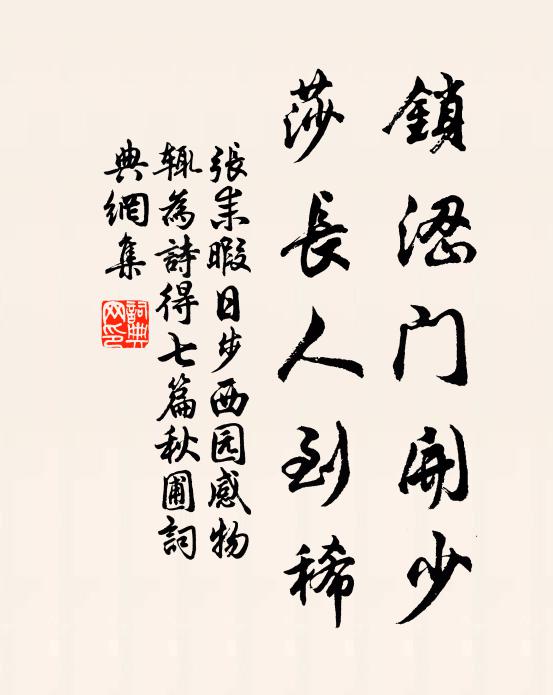 鎖澀門開少
莎長人到稀
張耒暇日步西园感物
輒為詩得七篇秋圃詞
典網集
詞典網印